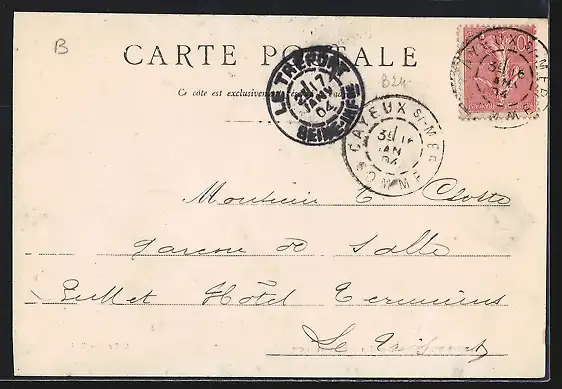 B
CARTE POSTALE
Ce côté est exclusivement
B24
LE TREPORT
17
JANV
04
SEINE-INFRE
CAYEUX S-MER
3E 16
JAN
04
SOMME
CAYEUX S-MER
3E 16
JAN
04
SOMME
10
Monsieur C
garcon de Salle
Buffet Hôtel Terminus
Le